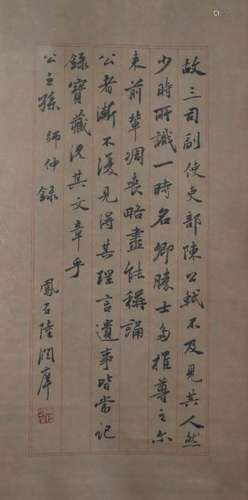 故三司副使吏部陳公軾不及見其人然
少時所識一時名卿勝士多推尊之尔
来前輩凋喪略盡能稱誦
公者漸不復見得其理言遺事皆當記
錄寶藏况其文章乎
公之孫師仲錄
鳳石陸潤庠